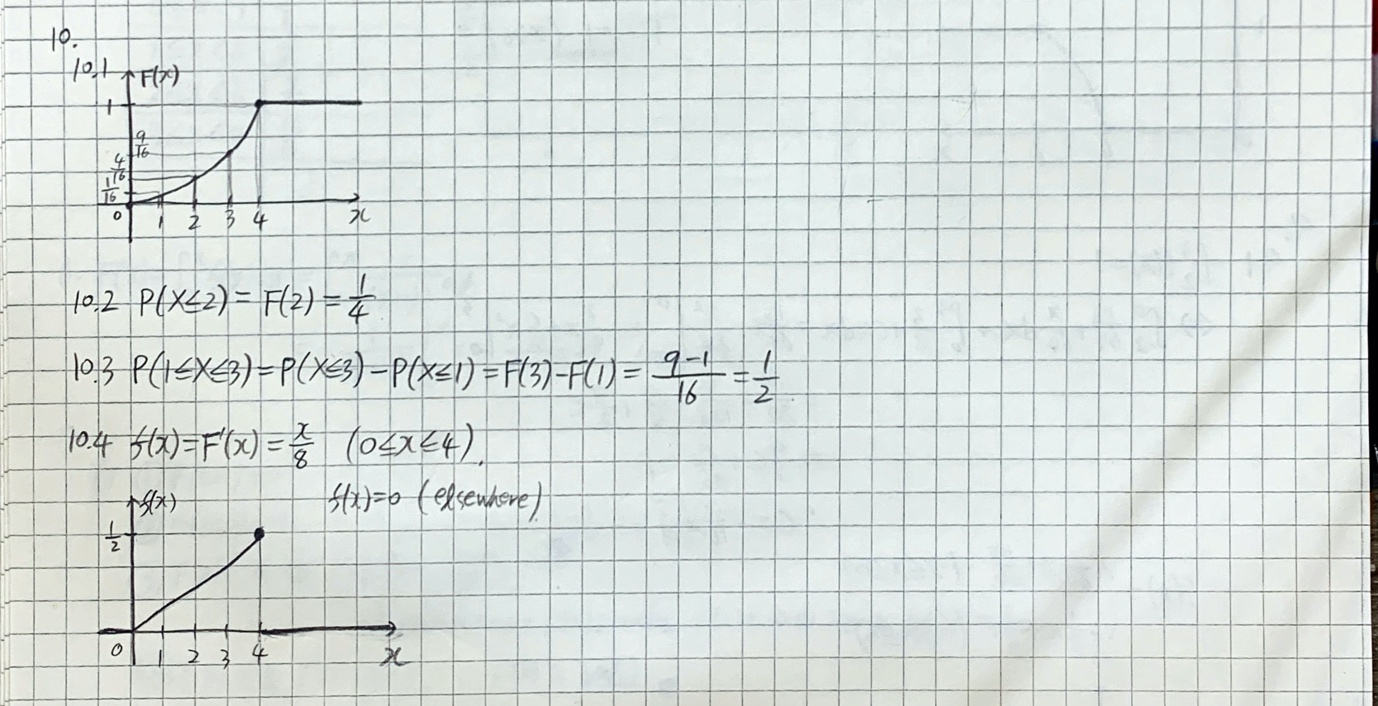 10.
10.1
F(x)
1
9/16
4/16
1/16
0 1 2 3 4 x
10.2 P(X≤2) = F(2) = 1/4
10.3 P(1≤X≤3) = P(X≤3) - P(X≤1) = F(3) - F(1) = (9-1)/16 = 1/2
10.4 f(x) = F'(x) = x/8 (0≤x≤4),
f(x) = 0 (elsewhere)
f(x)
1/2
0 1 2 3 4 x